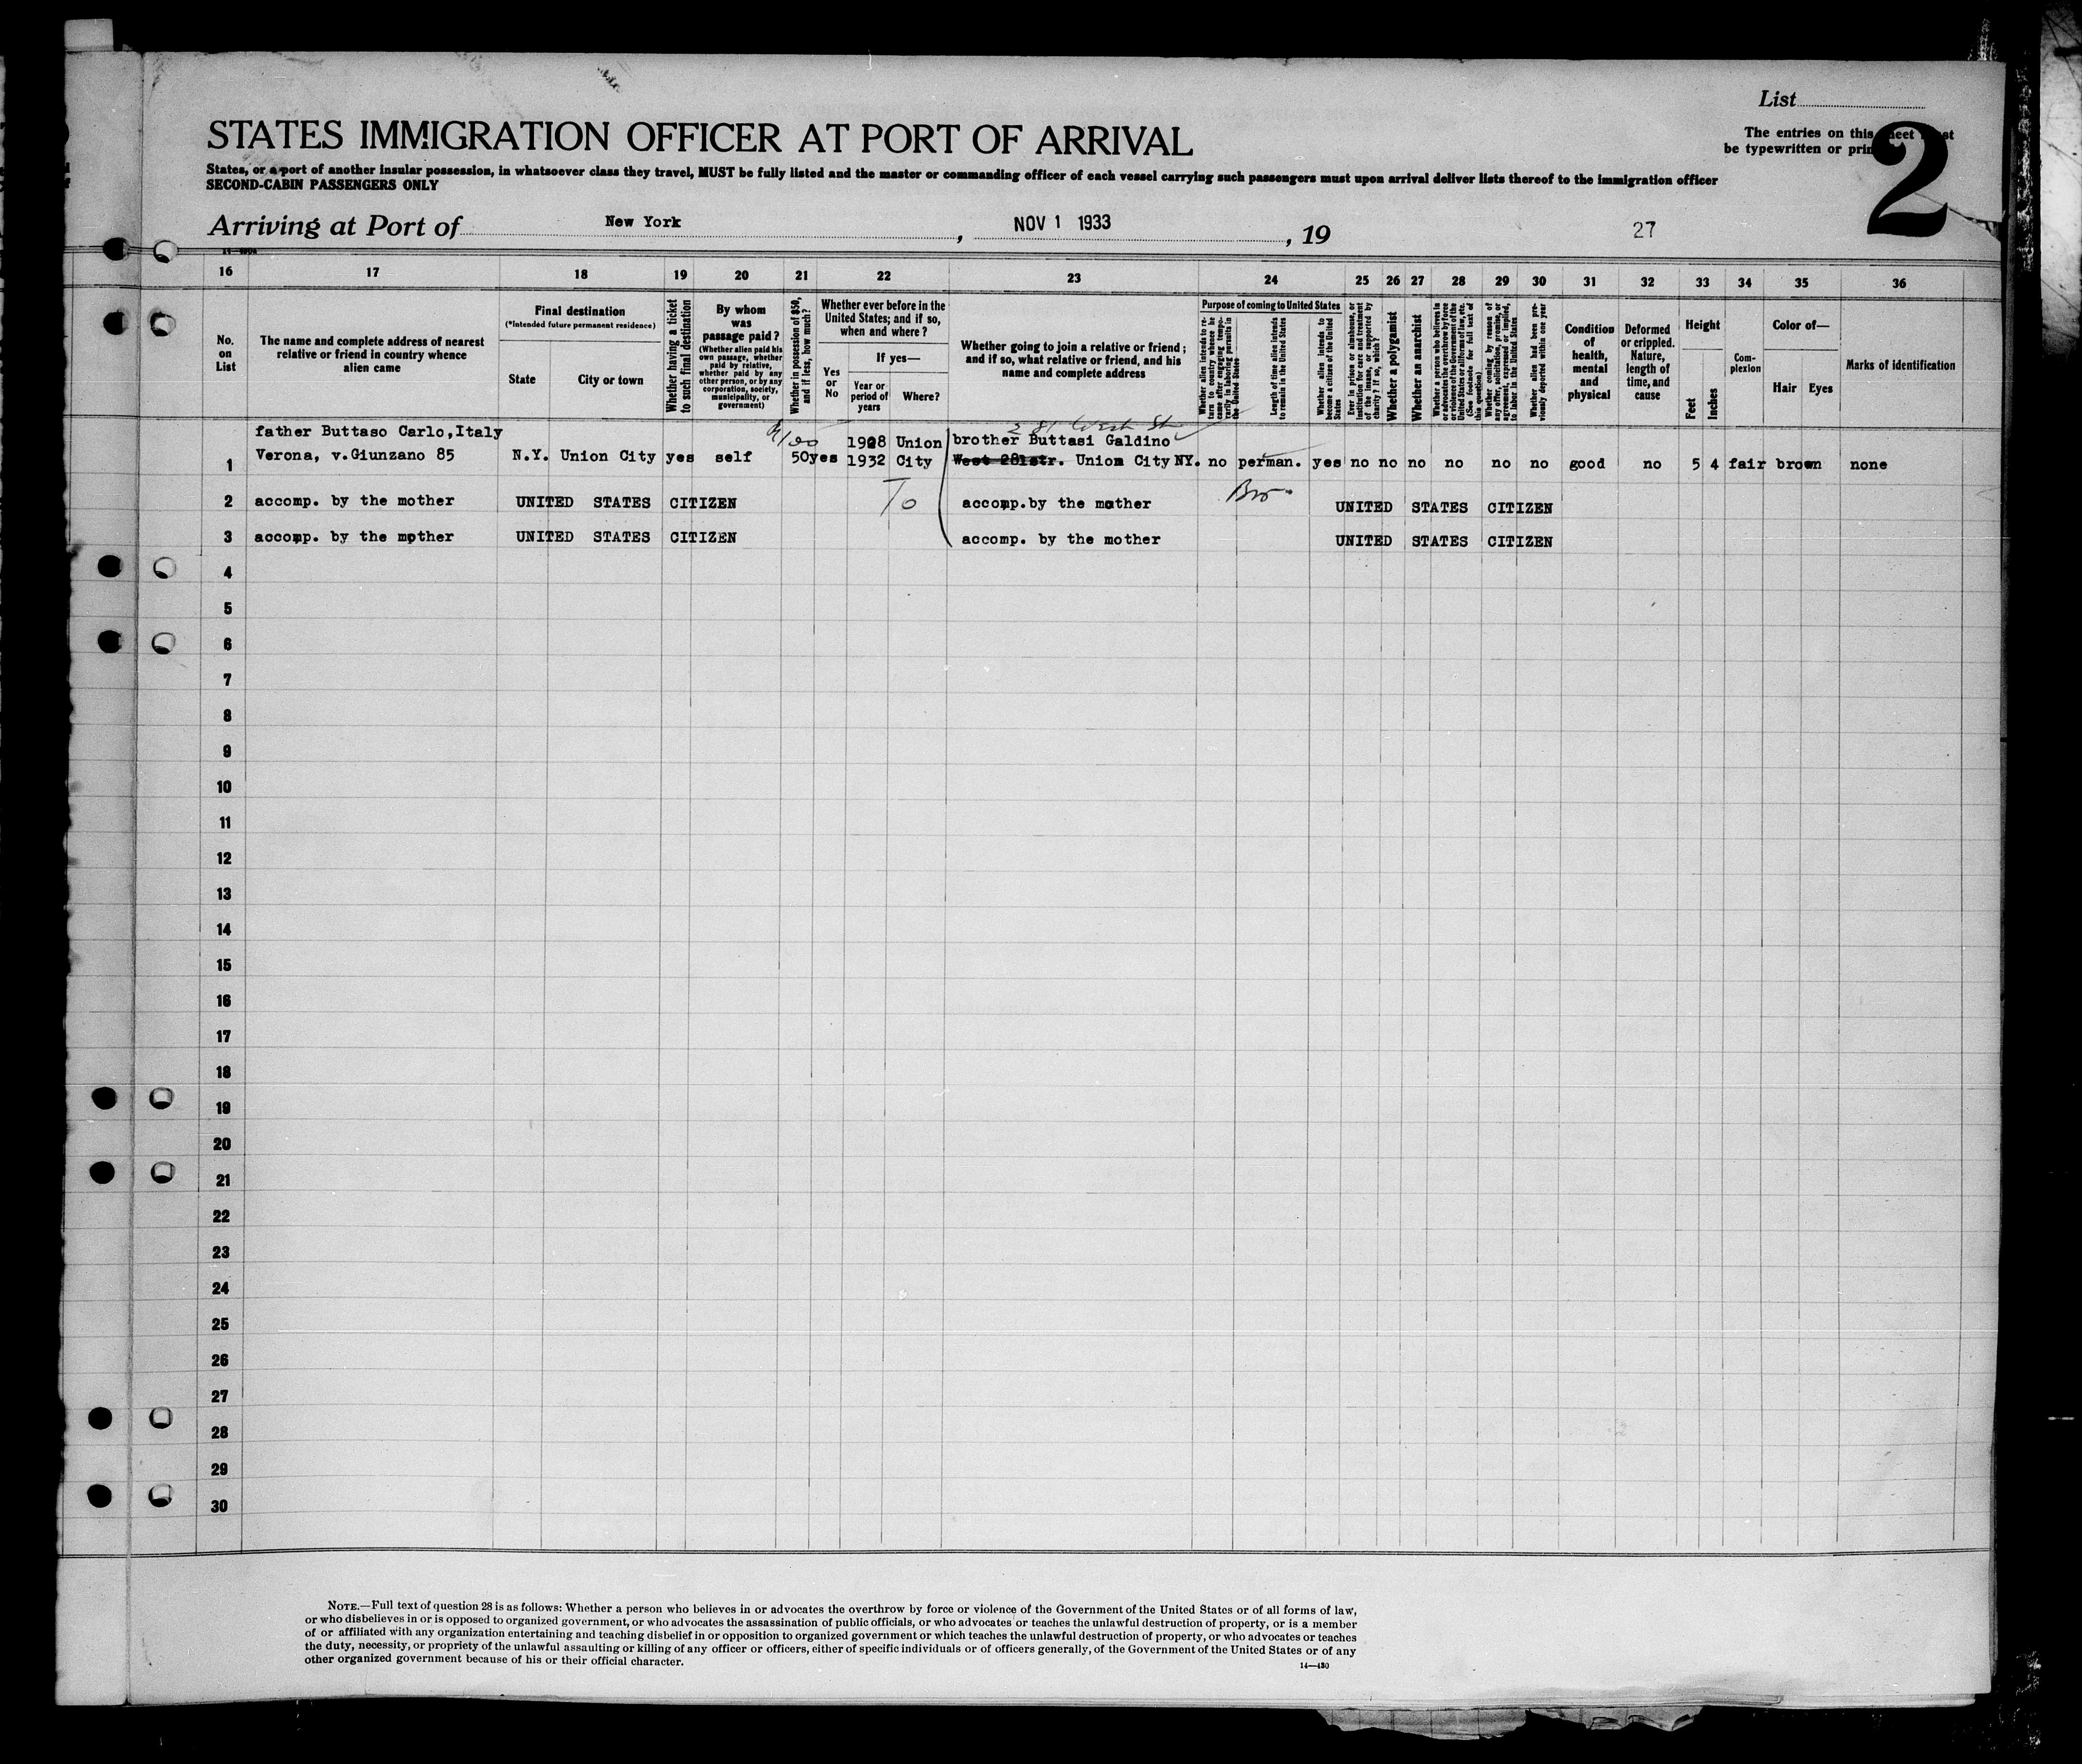 List
STATES IMMIGRATION OFFICER AT PORT OF ARRIVAL
The entries on this sheet must
be typewritten or prin
2
States, or a port of another insular possession, in whatsoever class they travel, MUST be fully listed and the master or commanding officer of each vessel carrying such passengers must upon arrival deliver lists thereof to the immigration officer
SECOND-CABIN PASSENGERS ONLY
Arriving at Port of New York, NOV 1 1933, 19
27
16 17 18 19 20 21 22 23 24 25 26 27 28 29 30 31 32 33 34 35 36
No. on List
The name and complete address of nearest relative or friend in country whence alien came
Final destination
(*Intended future permanent residence)
State
City or town
Whether having a ticket to such final destination
By whom was passage paid?
(Whether alien paid his own passage, whether paid by relative, whether paid by any other person, or by any corporation, society, municipality, or government)
Whether in possession of $50, and if less, how much?
Whether ever before in the United States; and if so, when and where?
Yes or No
If yes—
Year or period of years
Where?
Whether going to join a relative or friend; and if so, what relative or friend, and his name and complete address
Purpose of coming to United States
Whether alien intends to return to country whence he came after engaging temporarily in laboring pursuits in the United States
Length of time alien intends to remain in the United States
Whether alien intends to become a citizen of the United States
Ever in prison or almshouse, or institution for care and treatment of the insane, or supported by charity? If so, which?
Whether a polygamist
Whether an anarchist
Whether a person who believes in or advocates the overthrow by force or violence of the Government of the United States or all forms of law, etc. (See footnote for full text of this question)
Whether coming by reason of any offer, solicitation, promise, or agreement, expressed or implied, to labor in the United States
Whether alien had been previously deported within one year
Condition of health, mental and physical
Deformed or crippled. Nature, length of time, and cause
Height
Feet
Inches
Complexion
Color of—
Hair
Eyes
Marks of identification
281 West St
father Buttaso Carlo, Italy 1928 Union brother Buttasi Galdino
1 Verona, v.Giunzano 85 N.Y. Union City yes self 50 yes 1932 City West 281str. Union City NY. no perman. yes no no no no no no good no 5 4 fair brown none
2 accomp. by the mother UNITED STATES CITIZEN To accomp.by the mother Bro UNITED STATES CITIZEN
3 accomp. by the mother UNITED STATES CITIZEN accomp. by the mother UNITED STATES CITIZEN
4
5
6
7
8
9
10
11
12
13
14
15
16
17
18
19
20
21
22
23
24
25
26
27
28
29
30
NOTE.—Full text of question 28 is as follows: Whether a person who believes in or advocates the overthrow by force or violence of the Government of the United States or of all forms of law,
or who disbelieves in or is opposed to organized government, or who advocates the assassination of public officials, or who advocates or teaches the unlawful destruction of property, or is a member
of or affiliated with any organization entertaining and teaching disbelief in or opposition to organized government or which teaches the unlawful destruction of property, or who advocates or teaches
the duty, necessity, or propriety of the unlawful assaulting or killing of any officer or officers, either of specific individuals or of officers generally, of the Government of the United States or of any
other organized government because of his or their official character.
14—430